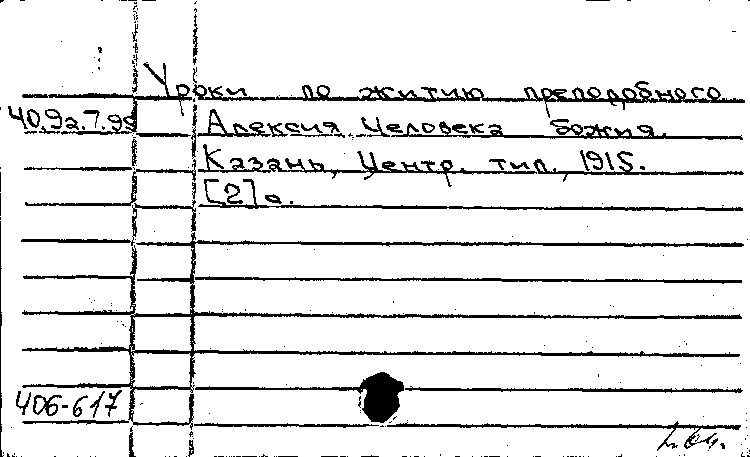 Уроки по житию преподобного
40.9а.7.99 Алексия, Человека Божия.
Казань, Центр. тип., 1915.
[2] с.
406-617